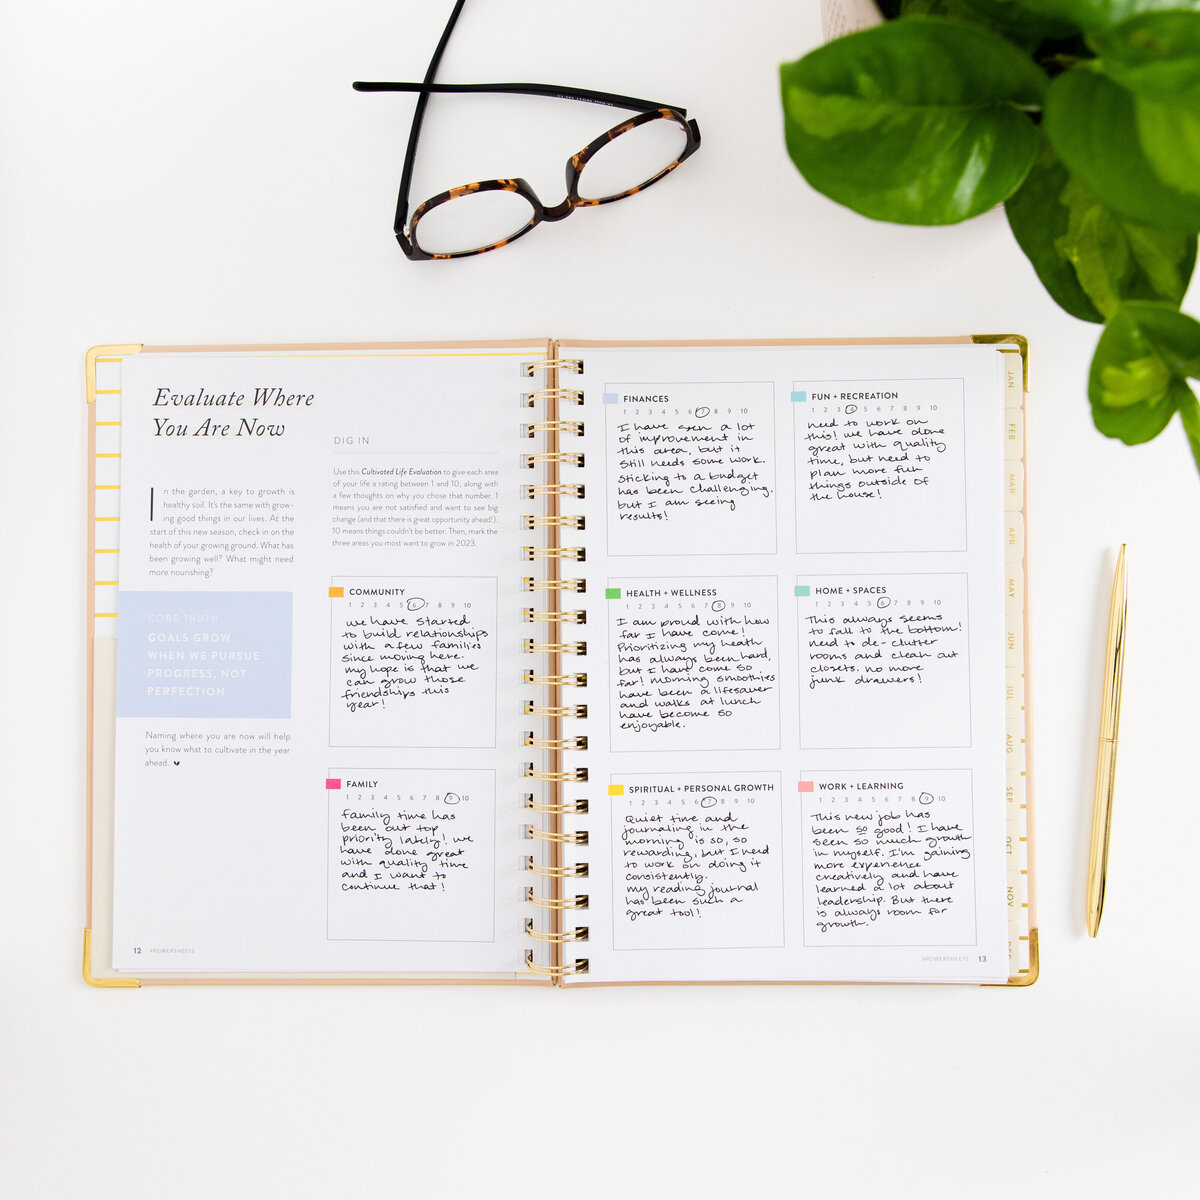 Evaluate Where
You Are Now
In the garden, a key to growth is
healthy soil. It's the same with grow-
ing good things in our lives. At the
start of this new season, check in on the
health of your growing ground. What has
been growing well? What might need
more nourishing?
CORE TRUTH:
GOALS GROW
WHEN WE PURSUE
PROGRESS, NOT
PERFECTION
Naming where you are now will help
you know what to cultivate in the year
ahead.
12 #POWERSHEETS
DIG IN
Use this Cultivated Life Evaluation to give each area
of your life a rating between 1 and 10, along with
a few thoughts on why you chose that number. 1
means you are not satisfied and want to see big
change (and that there is great opportunity ahead!).
10 means things couldn't be better. Then, mark the
three areas you most want to grow in 2023.
COMMUNITY
1 2 3 4 5 6 7 8 9 10
we have started
to build relationships
with a few families
since moving here.
my hope is that we
can grow those
friendships this
year!
FAMILY
1 2 3 4 5 6 7 8 9 10
family time has
been our top
priority lately! we
have done great
with quality time
and I want to
continue that!
FINANCES
1 2 3 4 5 6 7 8 9 10
I have seen a lot
of improvement in
this area, but it
still needs some work.
sticking to a budget
has been challenging.
but I am seeing
results!
FUN + RECREATION
1 2 3 4 5 6 7 8 9 10
need to work on
this! we have done
great with quality
time, but need to
plan more fun
things outside of
the house!
HEALTH + WELLNESS
1 2 3 4 5 6 7 8 9 10
I am proud with how
far I have come!
Prioritizing my heath
has always been hard,
but I have come so
far! morning smoothies
have been a lifesaver
and walks at lunch
have become so
enjoyable.
HOME + SPACES
1 2 3 4 5 6 7 8 9 10
This always seems
to fall to the bottom!
need to de-clutter
rooms and clean out
closets. no more
junk drawers!
SPIRITUAL + PERSONAL GROWTH
1 2 3 4 5 6 7 8 9 10
Quiet time and
journaling in the
morning is so, so
rewarding, but I need
to work on doing it
consistently.
my reading journal
has been such a
great tool!
WORK + LEARNING
1 2 3 4 5 6 7 8 9 10
This new job has
been so good! I have
seen so much growth
in myself. I'm gaining
more experience
creatively and have
learned a lot about
leadership. But there
is always room for
growth.
#POWERSHEETS 13
JAN
FEB
MAR
APR
MAY
JUN
JUL
AUG
SEP
OCT
NOV
DEC